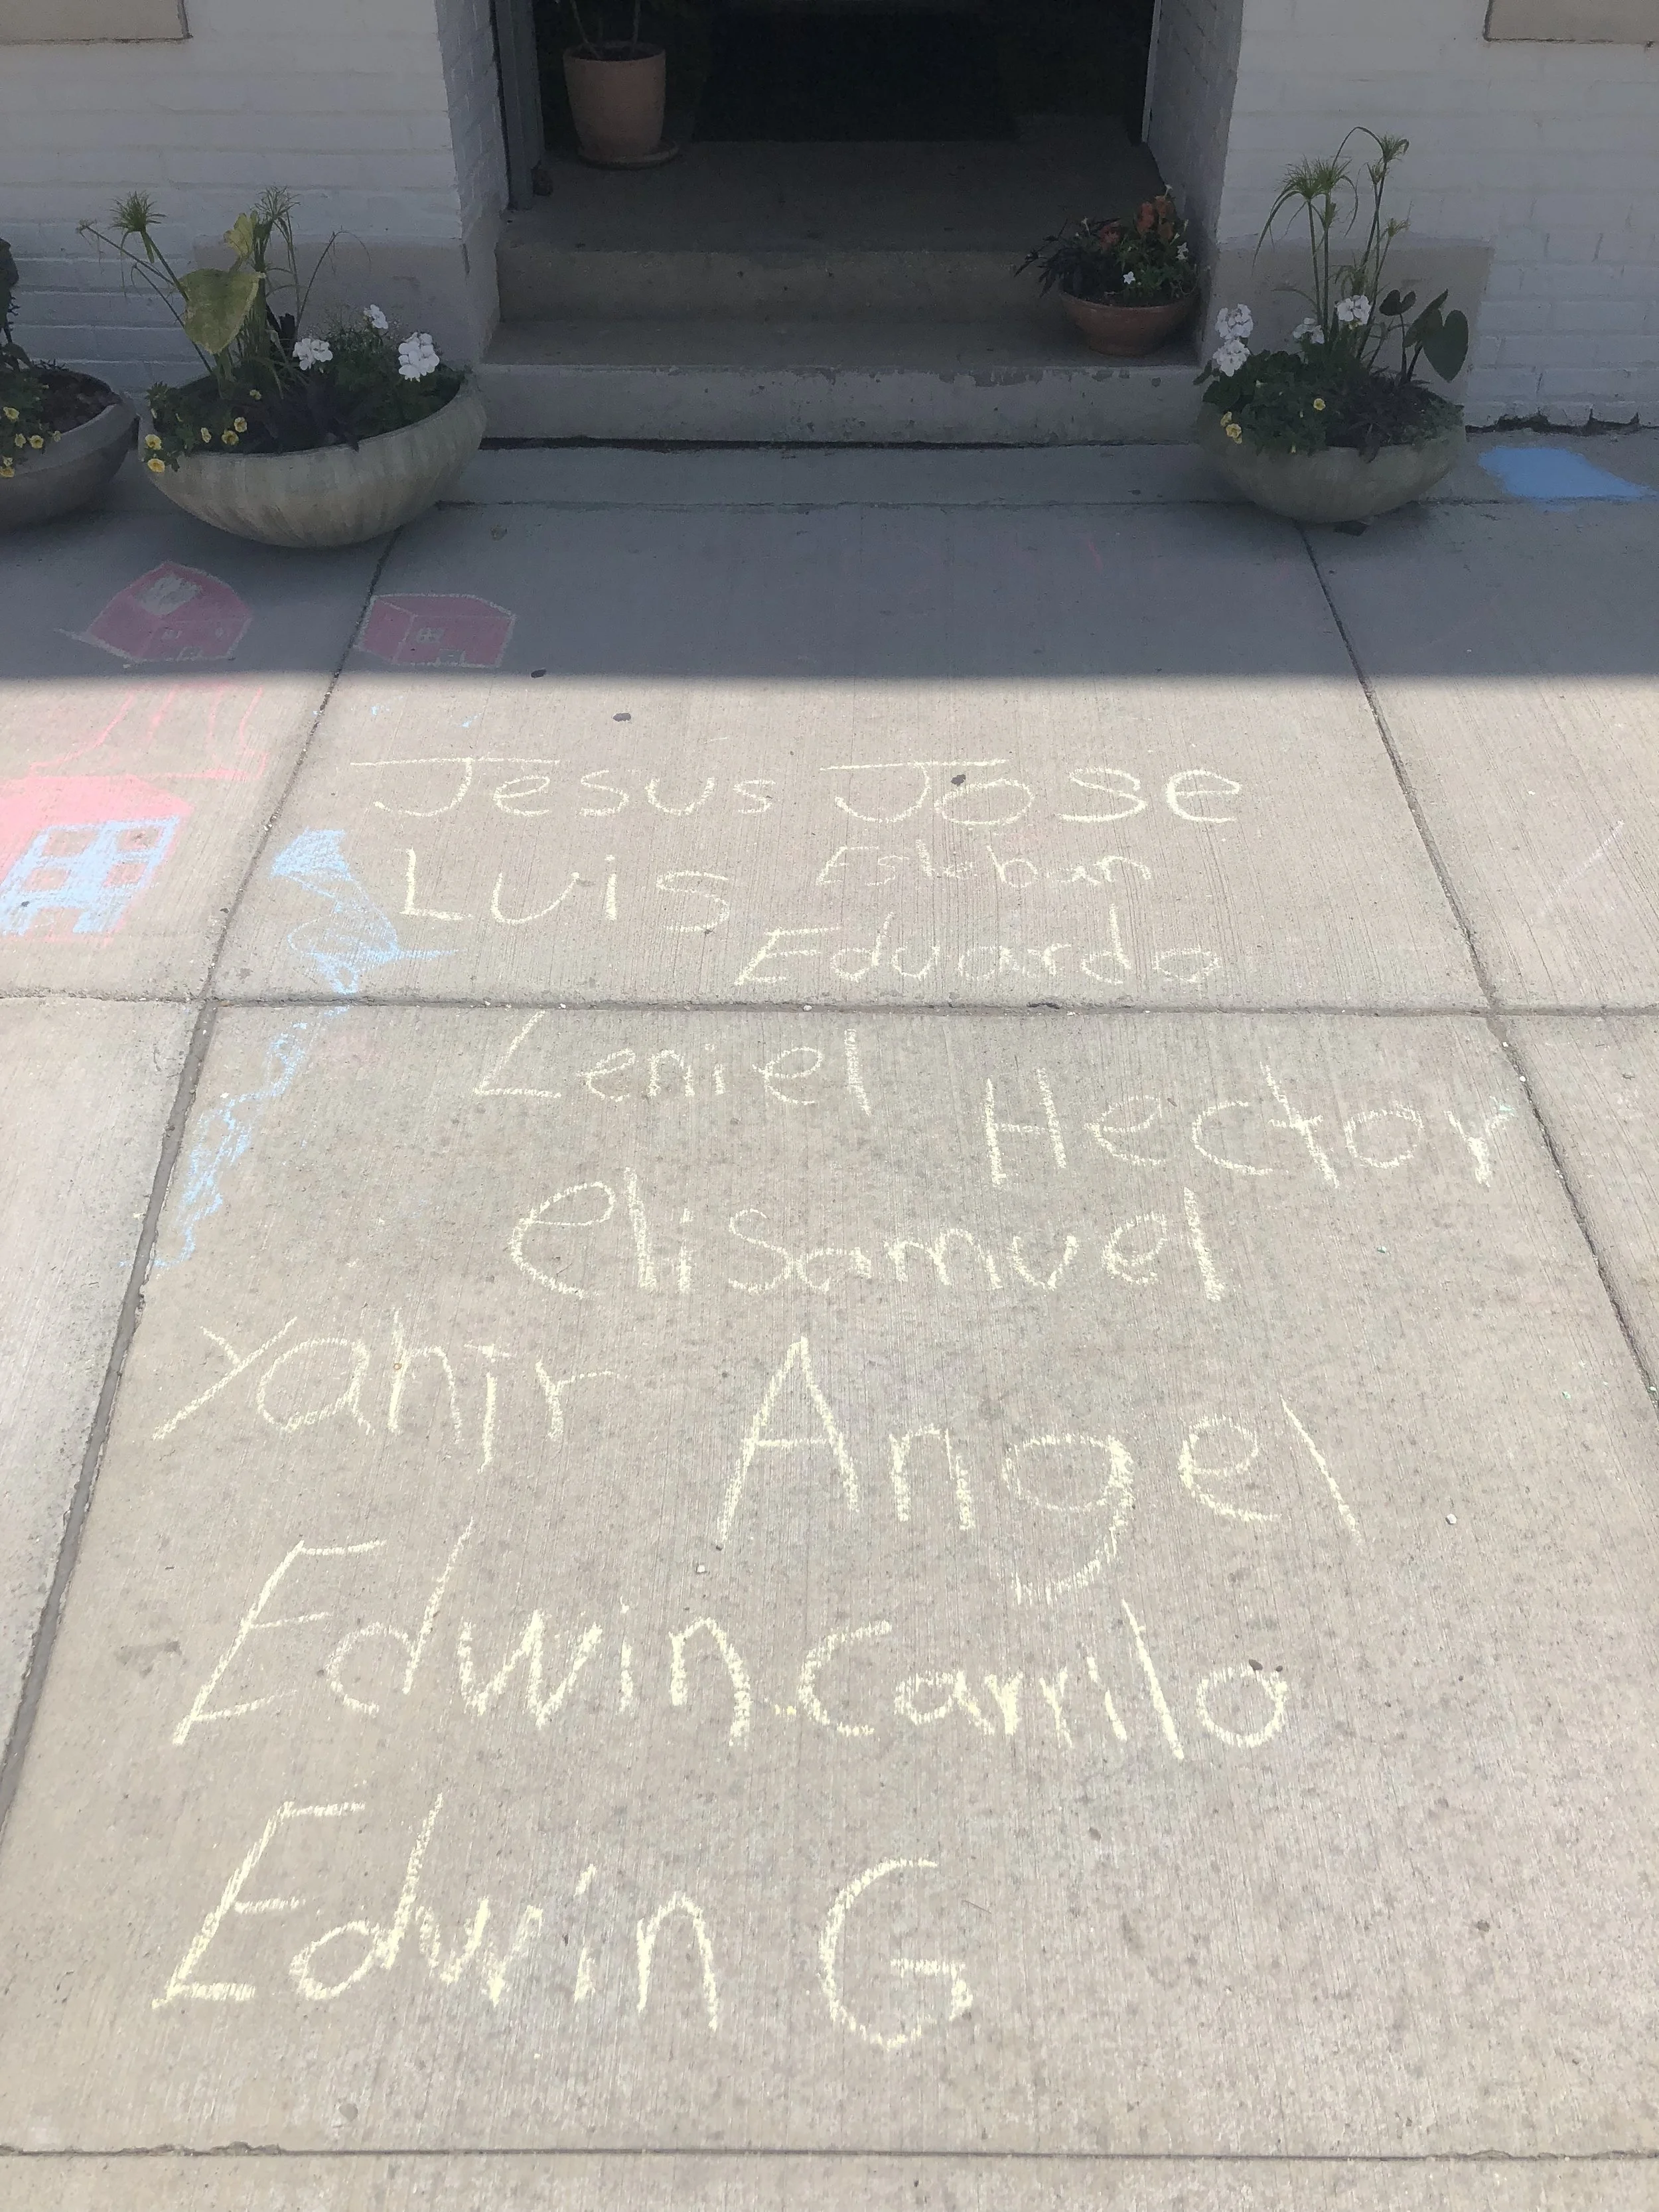 Jesus Jose
Luis Esteban
Eduardo
Leniel Hector
elisamuel
Yahir Angel
Edwin Carrilo
Edwin G